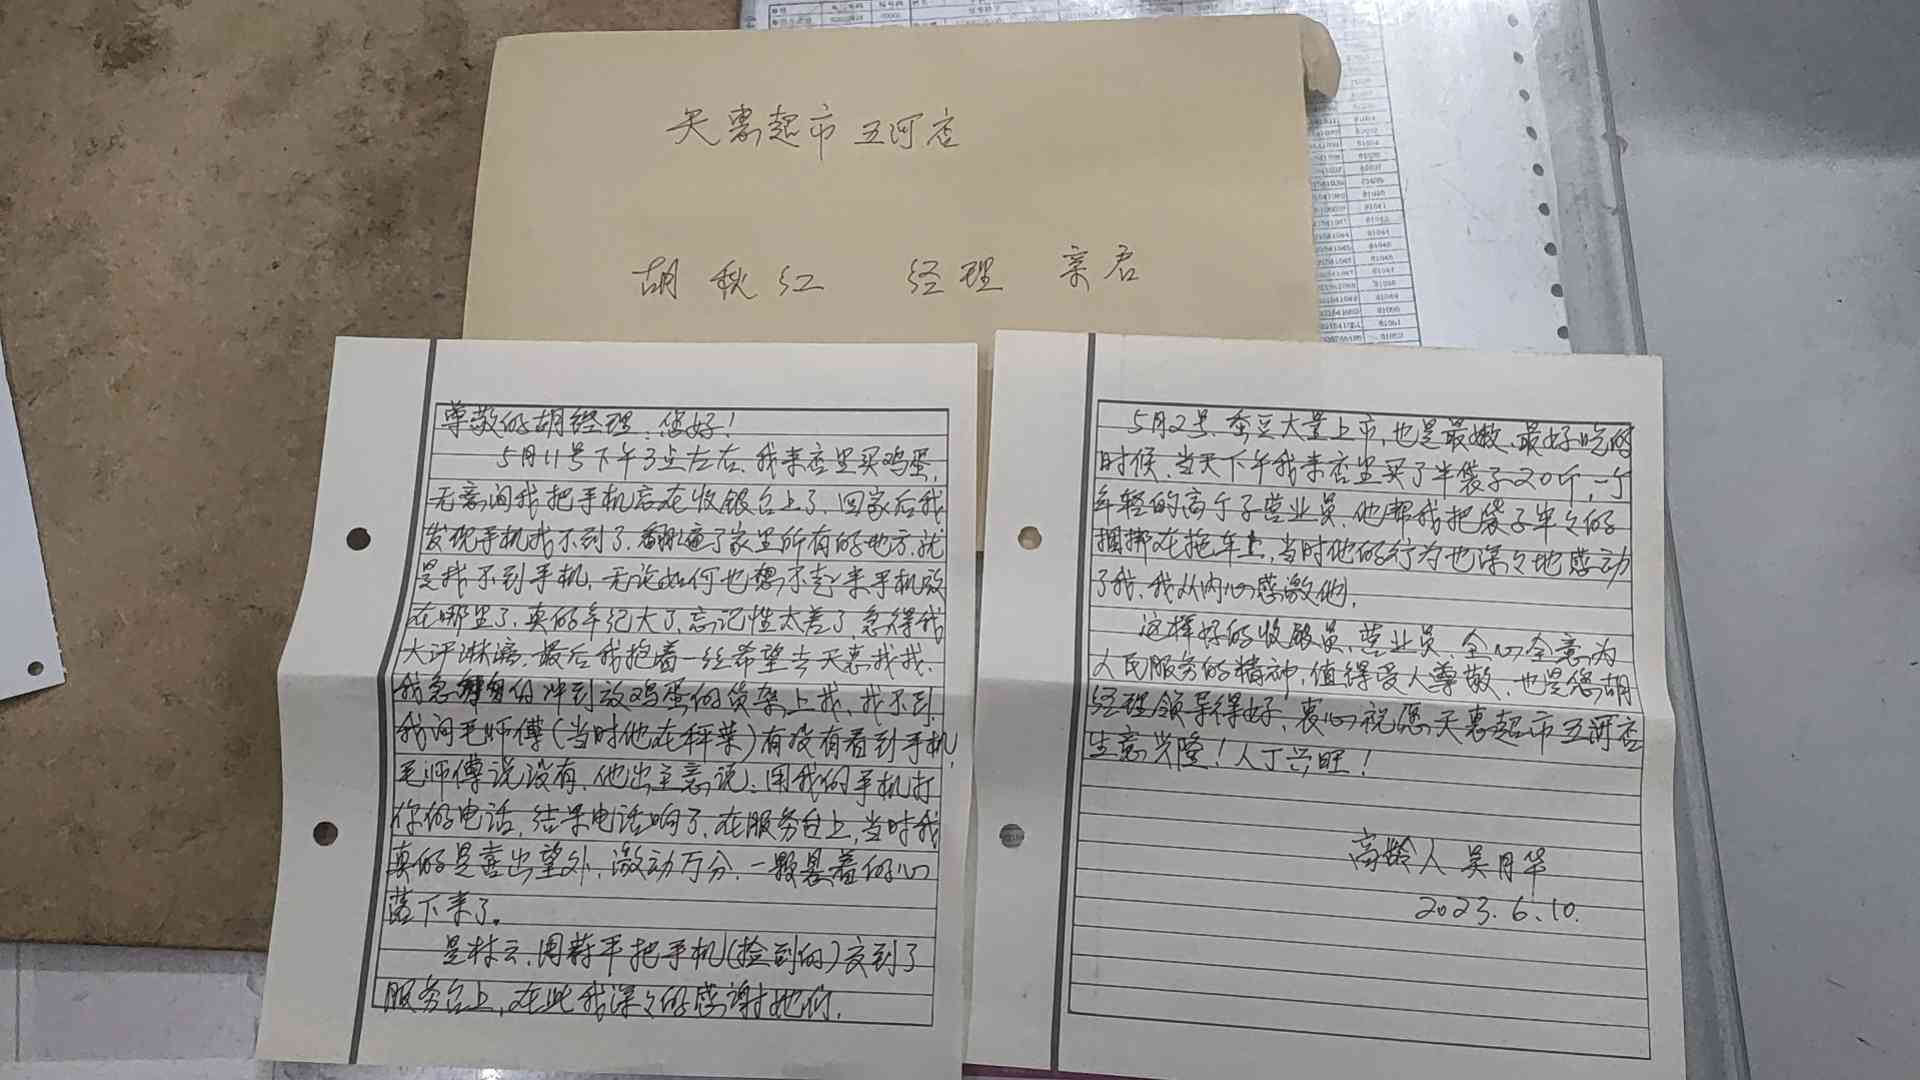 天惠超市五河店
胡秋红 经理 亲启
尊敬的胡经理、您好！
5月11号下午3点左右、我来店里买鸡蛋,
无意间我把手机忘在收银台上了、回家后我
发现手机找不到了、翻遍了家里所有的地方、就
是找不到手机、无论如何也想不起来手机放
在哪里了、真的年纪大了、忘记性太差了、急得我
大汗淋漓、最后我抱着一丝希望去天惠找找、
我急 冲到放鸡蛋的货架上找、找不到、
我问毛师傅(当时他在秤菜)有没有看到手机,
毛师傅说没有、他出主意说：用我的手机打
你的电话、结果电话响了、在服务台上、当时我
真的是喜出望外、激动万分、一颗悬着的心
落下来了。
是林云、周荷平把手机(捡到的)交到了
服务台上,在此我深々的感谢她们.
5月2号、蚕豆大量上市、也是最嫩、最好吃的
时候、当天下午我来店里买了半袋子20斤,一个
年轻的高个子营业员、他帮我把袋子牢々的
捆绑在拖车上、当时他的行为也深々地感动
了我、我从内心感激他、
这样好的收银员、营业员、全心全意为
人民服务的精神、值得受人尊敬、也是您胡
经理领导得好、衷心祝愿天惠超市五河店
生意兴隆！人丁兴旺！
高龄人 吴月华
2023.6.10.